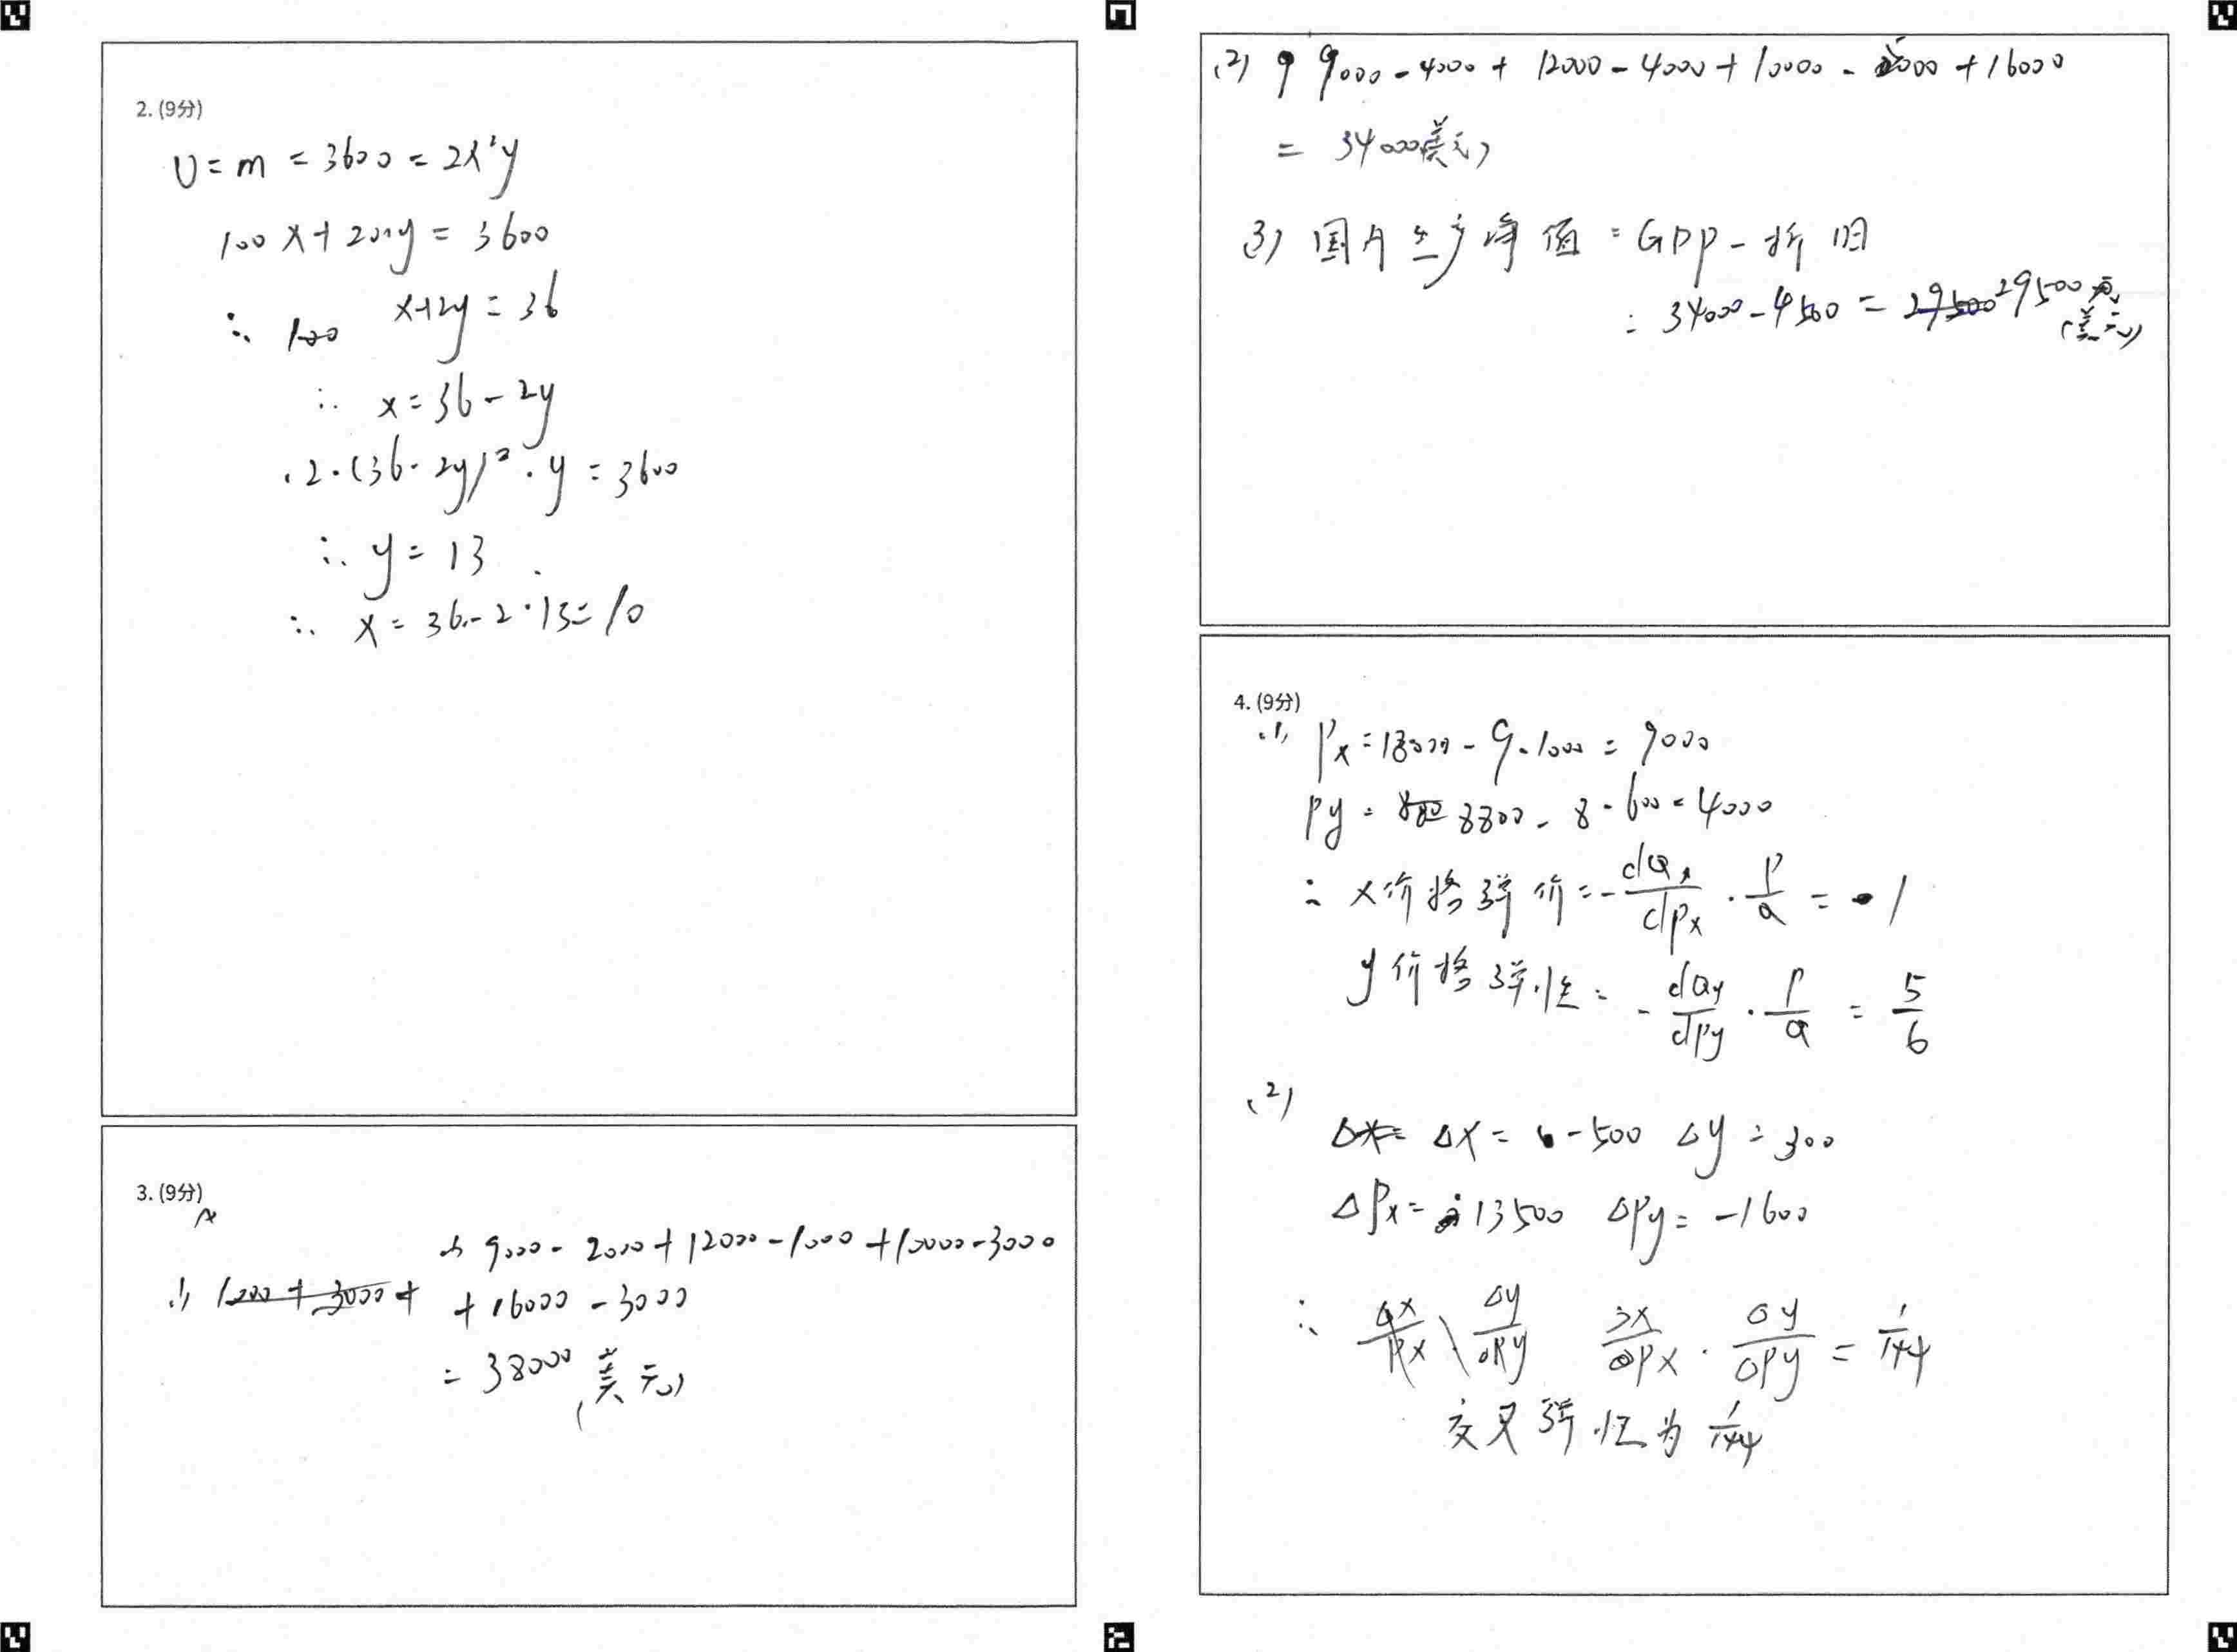 2. (9分)
U = m = 3600 = 2x²y
100x + 200y = 3600
∴ 100 x+2y = 36
∴ x = 36 - 2y
∴ 2·(36-2y)²·y = 3600
∴ y = 13
∴ x = 36 - 2·13 = 10
3. (9分)
(1) 1000 + 3000 + 9000 - 2000 + 12000 - 1000 + 10000 - 3000
+ 16000 - 3000
= 38000 (美元)
(2) 9000 - 4000 + 12000 - 4000 + 10000 - 5000 + 16000
= 34000(美元)
(3) 国内生产净值 = GDP - 折旧
= 34000 - 4500 = 29500 29500
(美元)
4. (9分)
(1) Px = 18000 - 9·1000 = 9000
Py = 880 8800 - 8·600 = 4000
∴ x价格弹价 = - dQx/dPx · P/Q = 1
y价格弹性 = - dQy/dPy · P/Q = 5/6
(2)
Δx = Δx = -500 Δy = 300
ΔPx = 13500 ΔPy = -1600
∴ Δx/Px · Δy/ΔPy Δx/ΔPx · Δy/ΔPy = 1/144
交叉弹性为 1/144